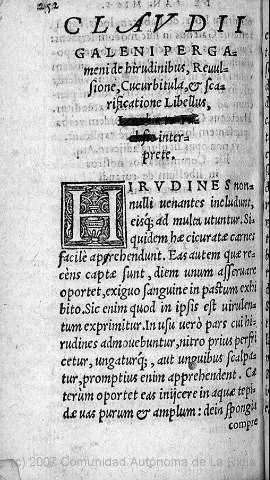 252
CLAVDII
GALENI PERGA-
meni de hirudinibus, Revul-
sione, Cucurbitula, & sca-
rificatione Libellus,
inter-
prete.
HIRVDINES non-
nulli venantes includunt,
eisq; ad multa utuntur. Si-
quidem hæ cicuratæ carnes
facile apprehendunt. Eas autem quæ re-
cèns captæ sunt, diem unum asservare
oportet, exiguo sanguine in pastum exhi-
bito. Sic enim quod in ipsis est virulen-
tum exprimitur. In usu verò pars cui hi-
rudines admovebuntur, nitro prius perfri
cetur, ungaturq;, aut unguibus scalpa-
tur, promptius enim apprehendent. Cæ
terùm oportet eas iniicere in aquæ tepi-
dæ vas purum & amplum: dein spongia
compre
(c) 2007 Comunidad Autónoma de La Rioja